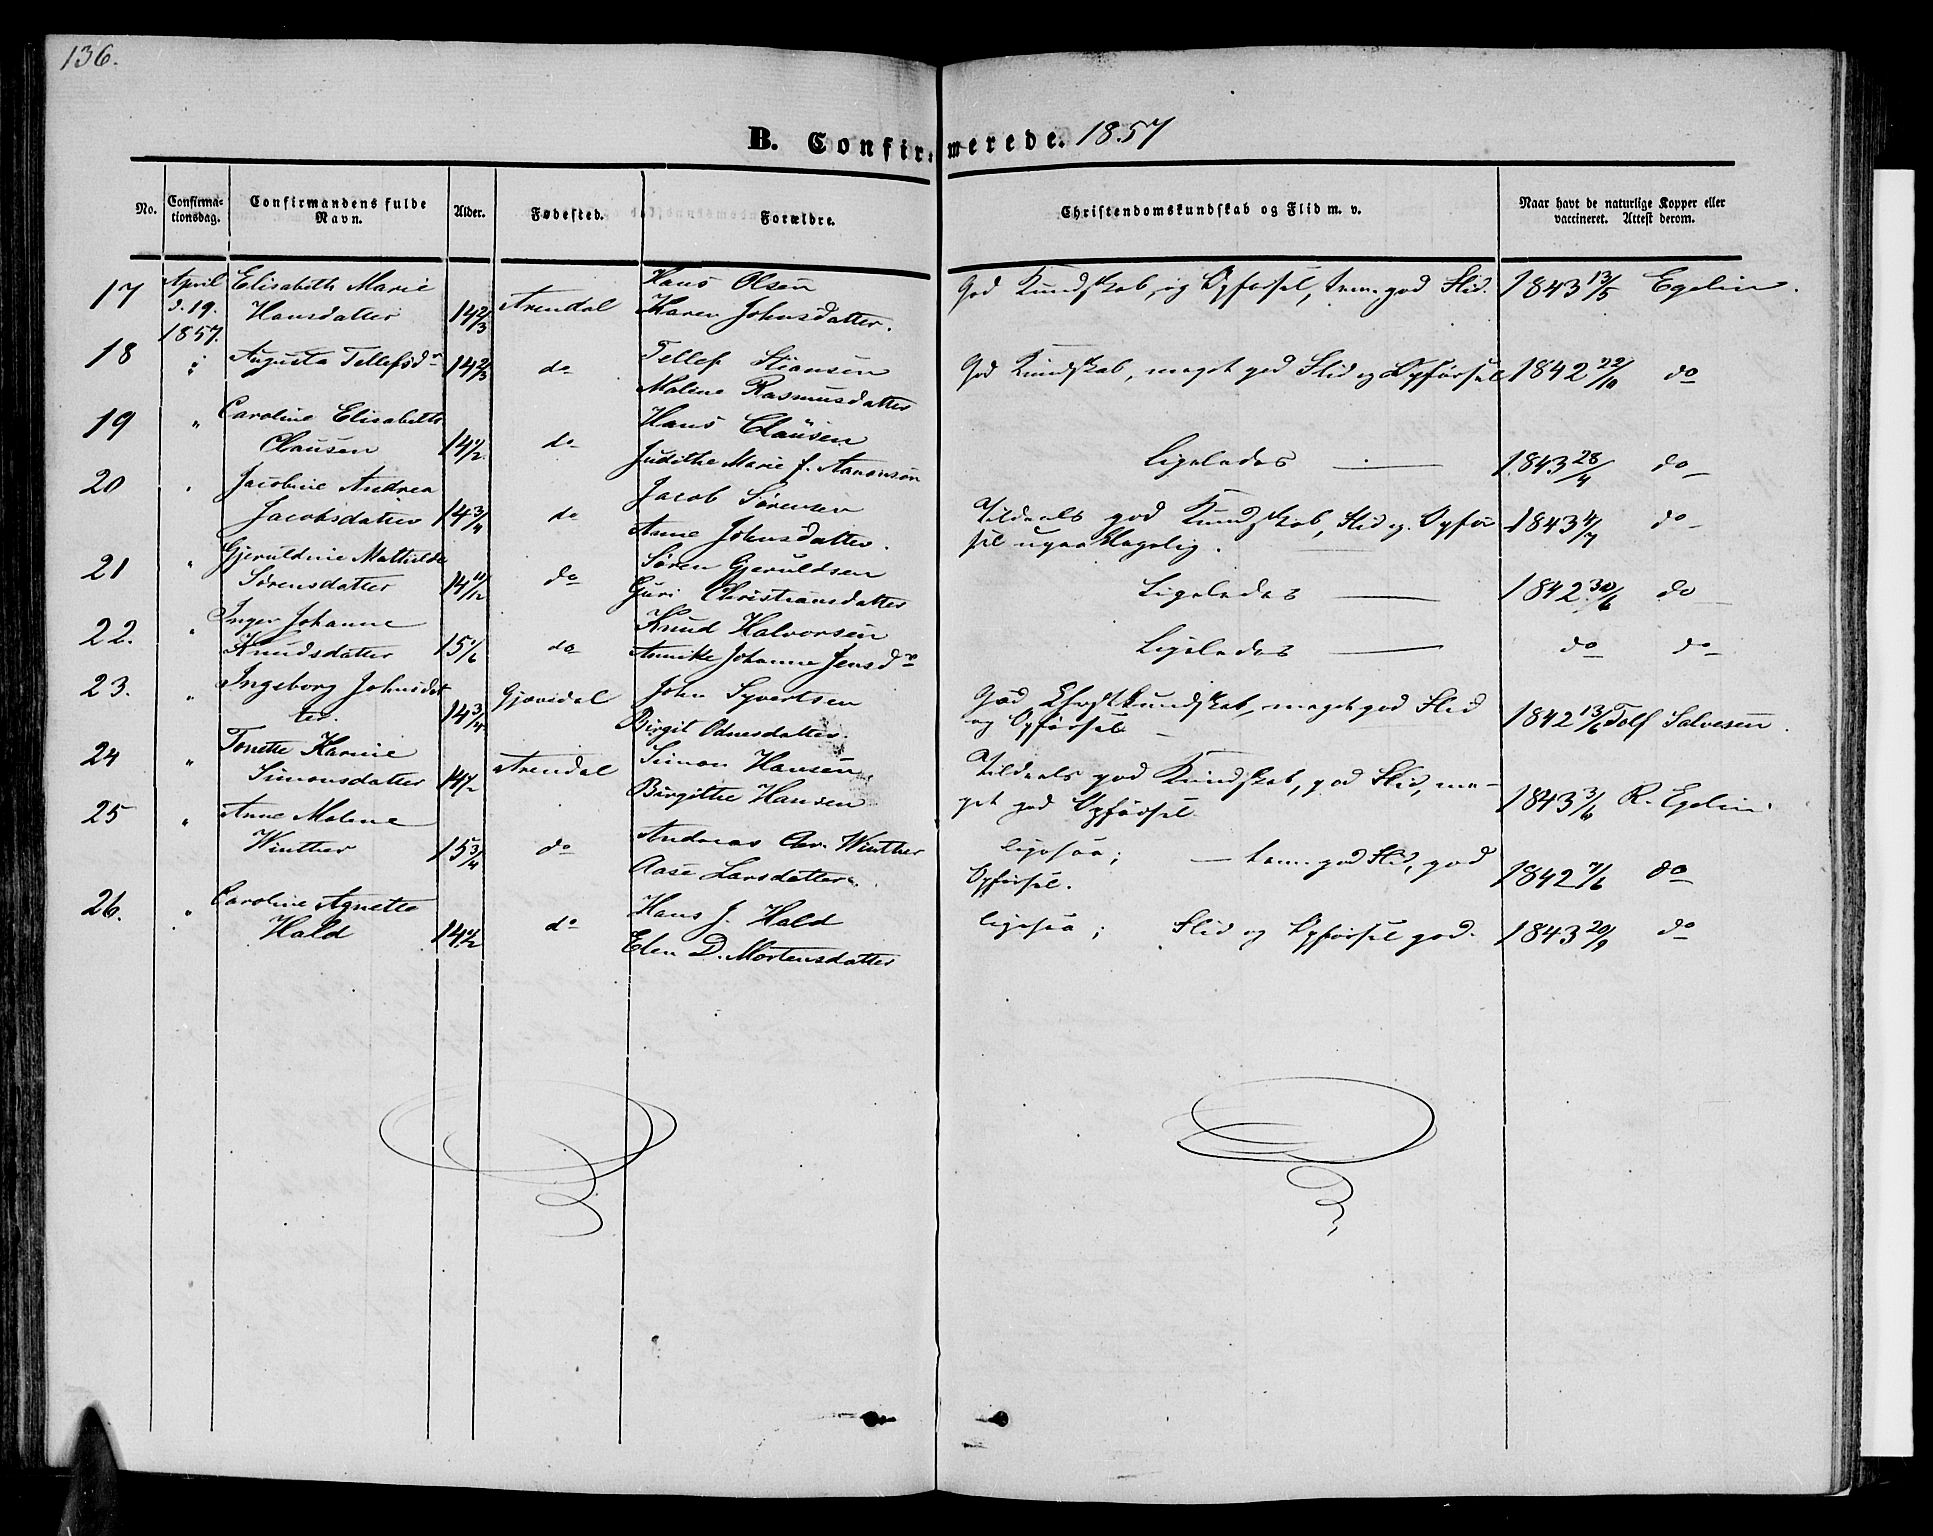 136.
B. Confirmerede. 1857
No.
Confirmationsdag.
Confirmandens fulde Navn.
Alder.
Fødested.
Forældre.
Christendomskundskab og Flid m. v.
Naar havt de naturlige Kopper eller vaccineret. Attest derom.
17 April Elisabeth Marie Hans Olsen
d. 19. Hansdatter 14 2/3 Arendal Maren Johnsdatter. God Kundskab, og Opførsel, tem. god Flid. 1843 13/5 Egelin.
1857.
18 " Augusta Tellefsdr 14 2/3 do Tellef Stiansen God Kundskab, meget god Flid og Opførsel 1842 22/10 do
Malene Rasmusdatter
19 " Caroline Elisabeth Hans Clausen
Clausen 14 1/2 do Judithe Marie f. Aanonsen Ligeledes — 1843 28/4 do
20 " Jacobine Andrea Jacob Sørensen
Jacobsdatter 14 3/4 do Anne Johnsdatter. Tildeels god Kundskab, Flid og Opfør 1843 4/7 do
sel upaaklagelig.
21 " Gjeruldine Mathilde Søren Gjeruldsen
Sørensdatter 14 11/12 do Guri Christiansdatter Ligeledes — 1842 30/6 do
22. " Inger Johanne Knud Halvorsen
Knudsdatter 15 1/6 do Annike Johanne Jensdr Ligeledes — do do
23. " Ingeborg Johnsdat John Syvertsen God Chrstkundskab, meget god Flid
ter. 14 3/4 Gjævedal Birgit Odnesdatter. og Opførsel 1842 13/6 Tolf Salvesen.
24 " Tonette Karine Simon Hansen Tildeels god Kundskab, god Flid, me-
Simonsdatter 14 1/2 Arendal Birgithe Hansen get god Opførsel 1843 3/6 R. Egelin.
25 " Anne Malene Andreas Chr. Winther ligesaa; — tem. god Flid, god
Winther 15 3/4 do Aase Larsdatter. Opførsel. 1842 7/6 do
26. " Caroline Agnette Hans J. Hald ligesaa; Flid og Opførsel god. 1843 20/9 do
Hald 14 1/2 do Elen D. Mortensdatter